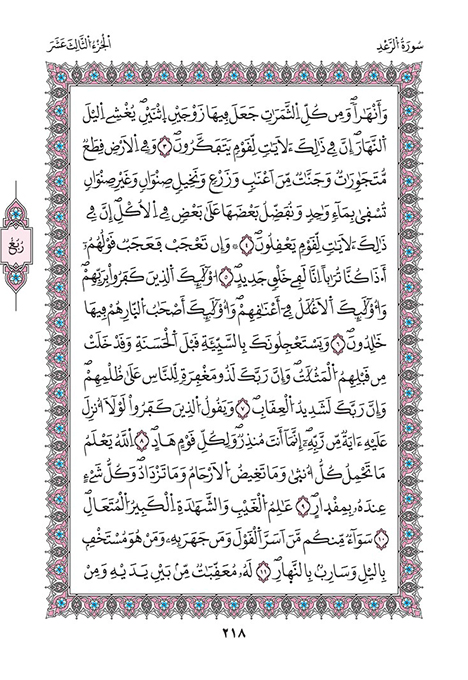 سُورَةُ الرَّعْدِ
الْجُزْءُ الثَّالِثَ عَشَرَ
وَأَنْهَٰراٗۖ وَمِن كُلِّ اِ۬لثَّمَرَٰتِ جَعَلَ فِيهَا زَوْجَيْنِ اِ۪ثْنَيْنِۖ يُغْشِے اِ۬ليْلَ
اَ۬لنَّهَارَۖ إِنَّ فِے ذَٰلِكَ ءَلَأيَٰتٖ لِّقَوْمٖ يَتَفَكَّرُونَۖ ٣ وَفِے اِ۬لْأَرْضِ قِطَعٞ
مُّتَجَٰوِرَٰتٞ وَجَنَّٰتٞ مِّنَ اَعْنَٰبٖ وَزَرْعٖ وَنَخِيلٖ صِنْوَانٖ وَغَيْرِ صِنْوَانٖ
تُسْقَىٰ بِمَآءٖ وَٰحِدٖ وَنُفَضِّلُ بَعْضَهَا عَلَىٰ بَعْضٖ فِے اِ۬لُاكْلِۖ إِنَّ فِے
ذَٰلِكَ ءَلَأيَٰتٖ لِّقَوْمٖ يَعْقِلُونَۖ ٤ وَإِن تَعْجَبْ فَعَجَبٞ قَوْلُهُمُۥٓ
أَ۟ذَا كُنَّا تُرَٰباً اِنَّا لَفِے خَلْقٖ جَدِيدٍۖ ٥ ا۟وْلَٰٓئِكَ اَ۬لذِينَ كَفَرُواْ بِرَبِّهِمْۖ
وَأُوْلَٰٓئِكَ اَ۬لَاغْلَٰلُ فِے أَعْنَاقِهِمْۖ وَأُوْلَٰٓئِكَ أَصْحَٰبُ اُ۬لنّ۪ارِ هُمْ فِيهَا
خَٰلِدُونَۖ ٦ وَيَسْتَعْجِلُونَكَ بِالسَّيِّئَةِ قَبْلَ اَ۬لْحَسَنَةِ وَقَدْ خَلَتْ
مِن قَبْلِهِمُ اُ۬لْمَثُلَٰتُۖ وَإِنَّ رَبَّكَ لَذُو مَغْفِرَةٖ لِّلنَّاسِ عَلَىٰ ظُلْمِهِمْۖ
وَإِنَّ رَبَّكَ لَشَدِيدُ اُ۬لْعِقَابِۖ ٧ وَيَقُولُ اُ۬لذِينَ كَفَرُواْ لَوْلَآ أُنزِلَ
عَلَيْهِ ءَايَةٞ مِّن رَّبِّهِۦٓۖ إِنَّمَآ أَنتَ مُنذِرٞۖ وَلِكُلِّ قَوْمٍ هَادٍۖ ٨ اِ۬للَّهُ يَعْلَمُ
مَا تَحْمِلُ كُلُّ أُنث۪ىٰ وَمَا تَغِيضُ اُ۬لَارْحَامُ وَمَا تَزْدَادُۖ وَكُلُّ شَےْءٍ
عِندَهُۥ بِمِقْد۪ارٍۖ ٩ عَٰلِمُ اُ۬لْغَيْبِ وَالشَّهَٰدَةِ اِ۬لْكَبِيرُ اُ۬لْمُتَعَالِۖ
١٠ سَوَآءٞ مِّنكُم مَّنَ اَسَرَّ اَ۬لْقَوْلَ وَمَن جَهَرَ بِهِۦۖ وَمَنْ هُوَ مُسْتَخْفِۢ
بِاليْلِ وَسَارِبُۢ بِالنَّه۪ارِۖ ١١ لَهُۥ مُعَقِّبَٰتٞ مِّنۢ بَيْنِ يَدَيْهِ وَمِنْ
رُبُع
٢١٨